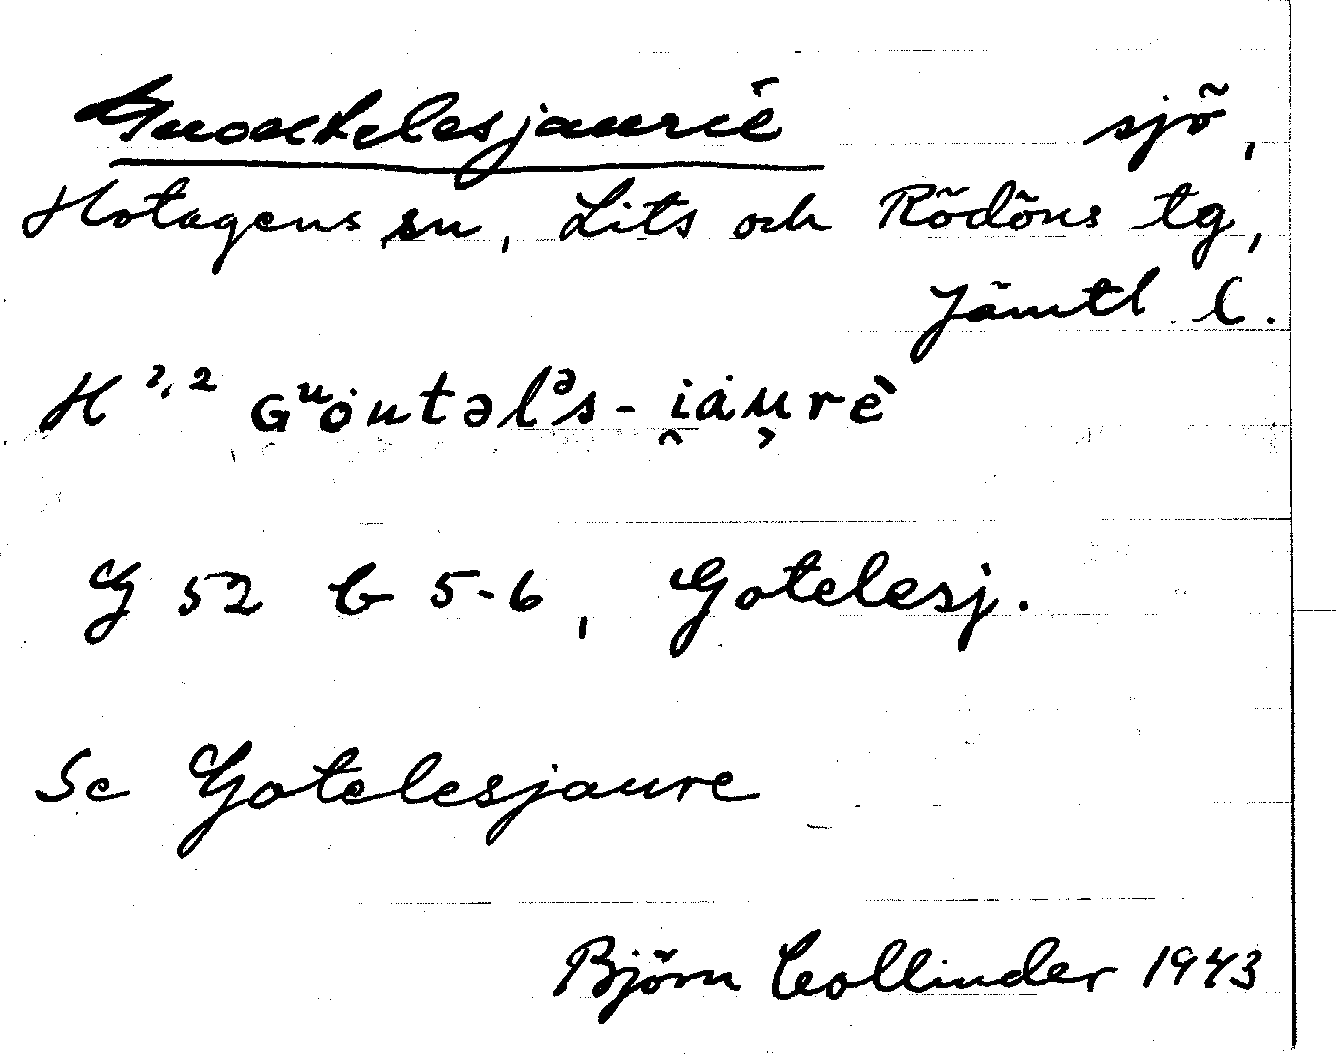 Guoktelesjaurie sjö,
Hotagens sn, Lits och Rödöns tg,
Jämtl l.
H ?, 2 Gᵘȯutəlᵊs - i̯ȧu̯rè
G 52 b 5-6, Gotelesj.
Se Gotelesjaure
Björn Collinder 1943